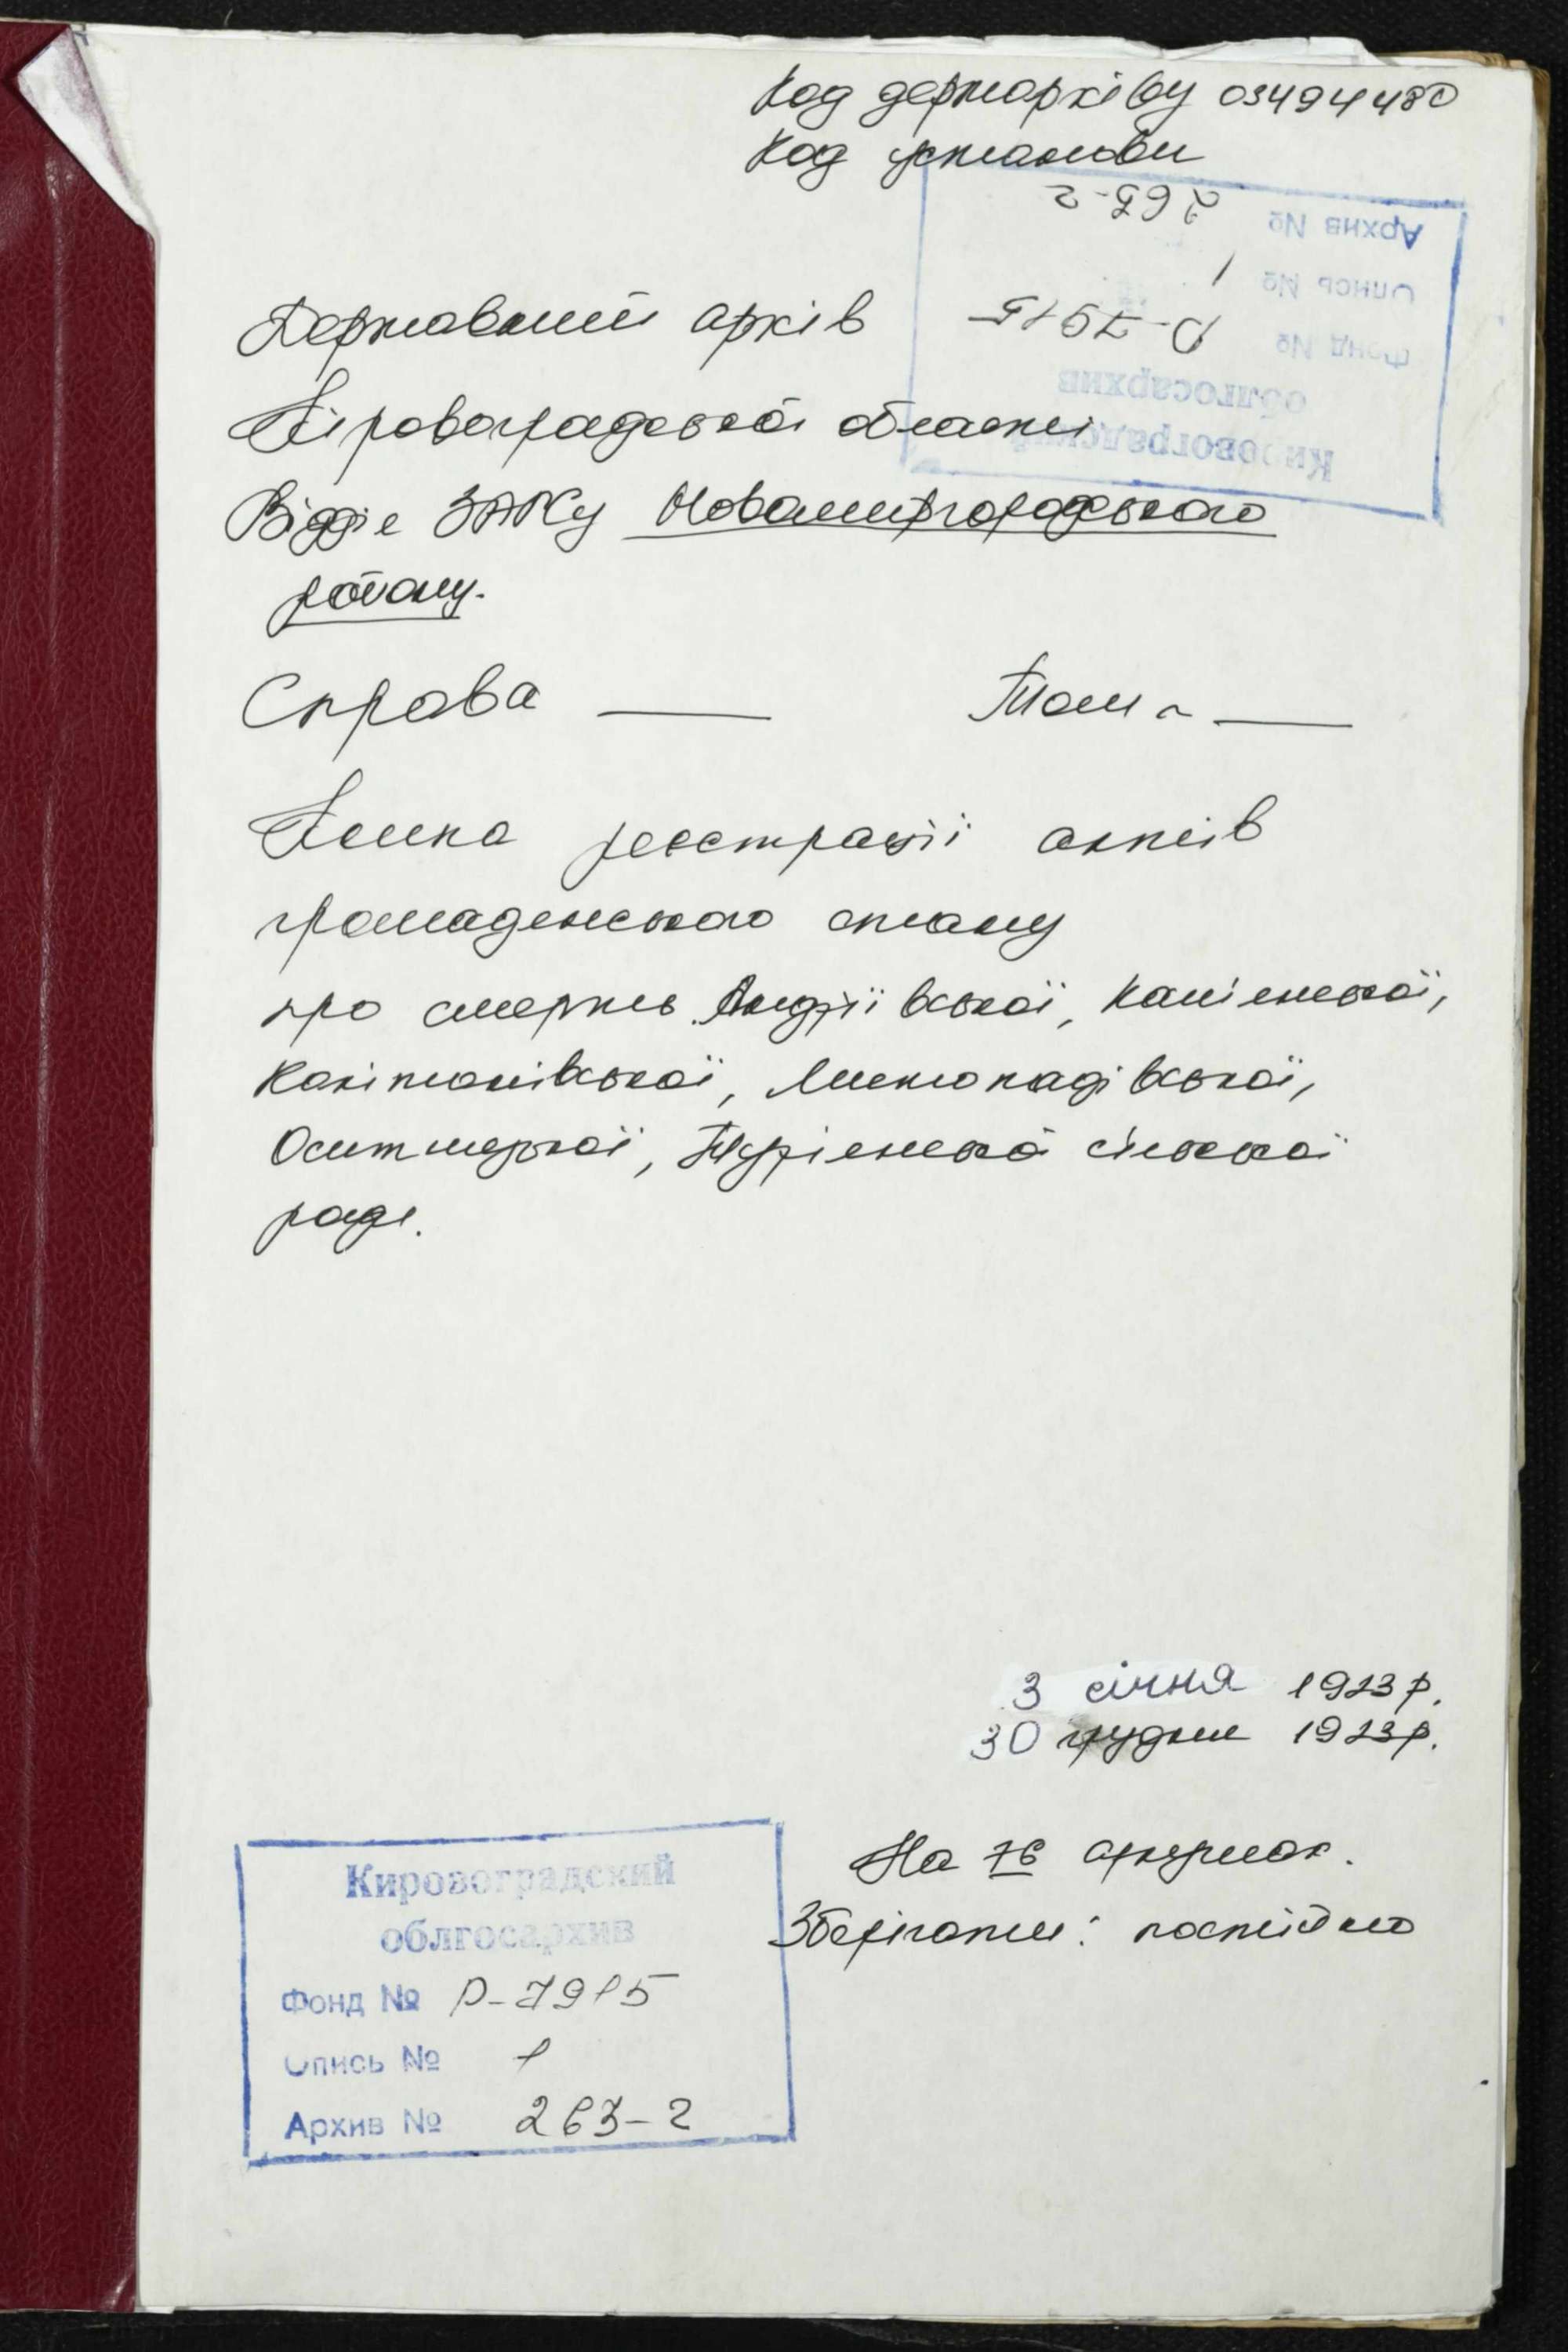 Код держархіву 03494480
Код установи
Кировоградский
облгосархив
Фонд № Р-7915
Опись № 1
Архив № 265-2
Державний архів
Кіровоградської області
Відділ ЗАГСу Новомиргородського
району.
Справа Том
Книга реєстрації актів
громадянського стану
про смерть Андріївської, Каніжської,
Капітонівської, Листопадівської,
Оситняжської, Турійської сільської
раді.
3 січня 1923 р.
30 грудня 1923 р.
На 76 аркушах.
Зберігати: постійно
Кировоградский
облгосархив
Фонд № Р-7915
Опись № 1
Архив № 263-2